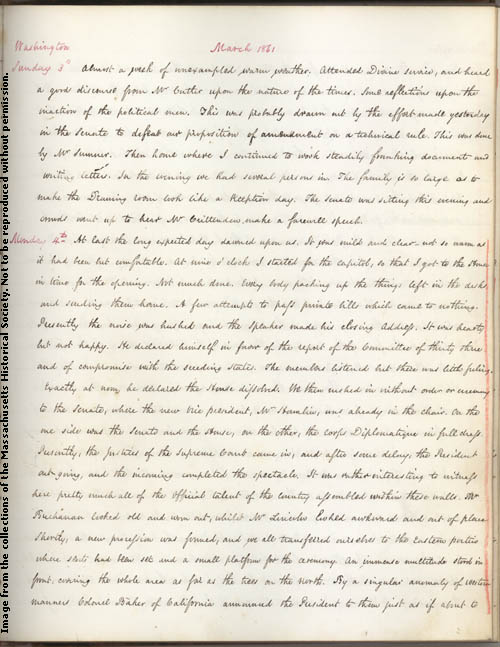 Image from the collections of the Massachusetts Historical Society. Not to be reproduced without permission.
Washington March 1861
Sunday 3d Almost a week of unexampled warm weather. Attended Divine service, and heard
a good discourse from Mr Cutler upon the nature of the times. Some reflections upon the
inaction of the political men. This was probably drawn out by the effort made yesterday
in the Senate to defeat our proposition of amendment on a technical rule. This was done
by Mr Sumner. Then home where I continued to work steadily franking documents and
writing letters. In the evening we had several persons in. The family is so large as to
make the Drawing room look like a Reception day. The Senate was sitting this evening and
crowds went up to hear Mr Crittenden make a farewell speech.
Monday 4th At last the long expected day dawned upon us. It was mild and clear—not so warm as
it had been but comfortable. At nine o'clock I started for the capitol, so that I got to the House
in time for the opening. Not much done. Every body packing up the things left in the desks
and sending them home. A few attempts to pass private bills which came to nothing.
Presently the noise was hushed and the Speaker made his closing Address. It was hearty
but not happy. He declared himself in favor of the report of the Committee of thirty three
and of compromise with the seceding states. The members listened but there was little feeling.
Exactly at noon, he declared the House dissolved. We then rushed in without order or ceremony
to the Senate, where the new Vice president, Mr Hamlin, was already in the chair. On the
one side was the Senate and the House, on the other, the corps Diplomatique in full dress.
Presently, the justices of the Supreme Court came in, and after some delay, the President
out-going, and the incoming completed the spectacle. It was rather interesting to witness
here pretty much all of the Official talent of the country assembled within these walls. Mr
Buchanan looked old and worn out, whilst Mr Lincoln looked awkward and out of place
Shortly, a new procession was formed, and we all transferred ourselves to the Eastern portico
where seats had been set and a small platform for the ceremony. An immense multitude stood in
front, covering the whole area as far as the trees on the north. By a singular anomaly of western
manners Colonel Baker of California announced the President to them just as if about to